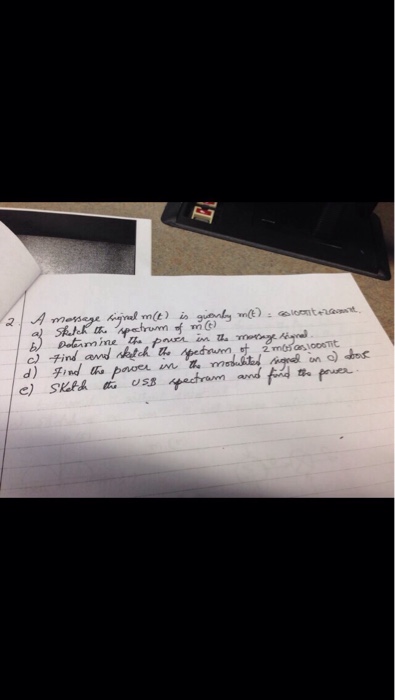 2. A message signal m(t) is given by m(t) = cos100πt+2cos
a) Sketch the spectrum of m(t)
b) Determine the power in the message signal.
c) Find and sketch the spectrum of 2m(t)cos1000πt
d) Find the power in the modulated signal in c) above
e) Sketch the USB spectrum and find the power.